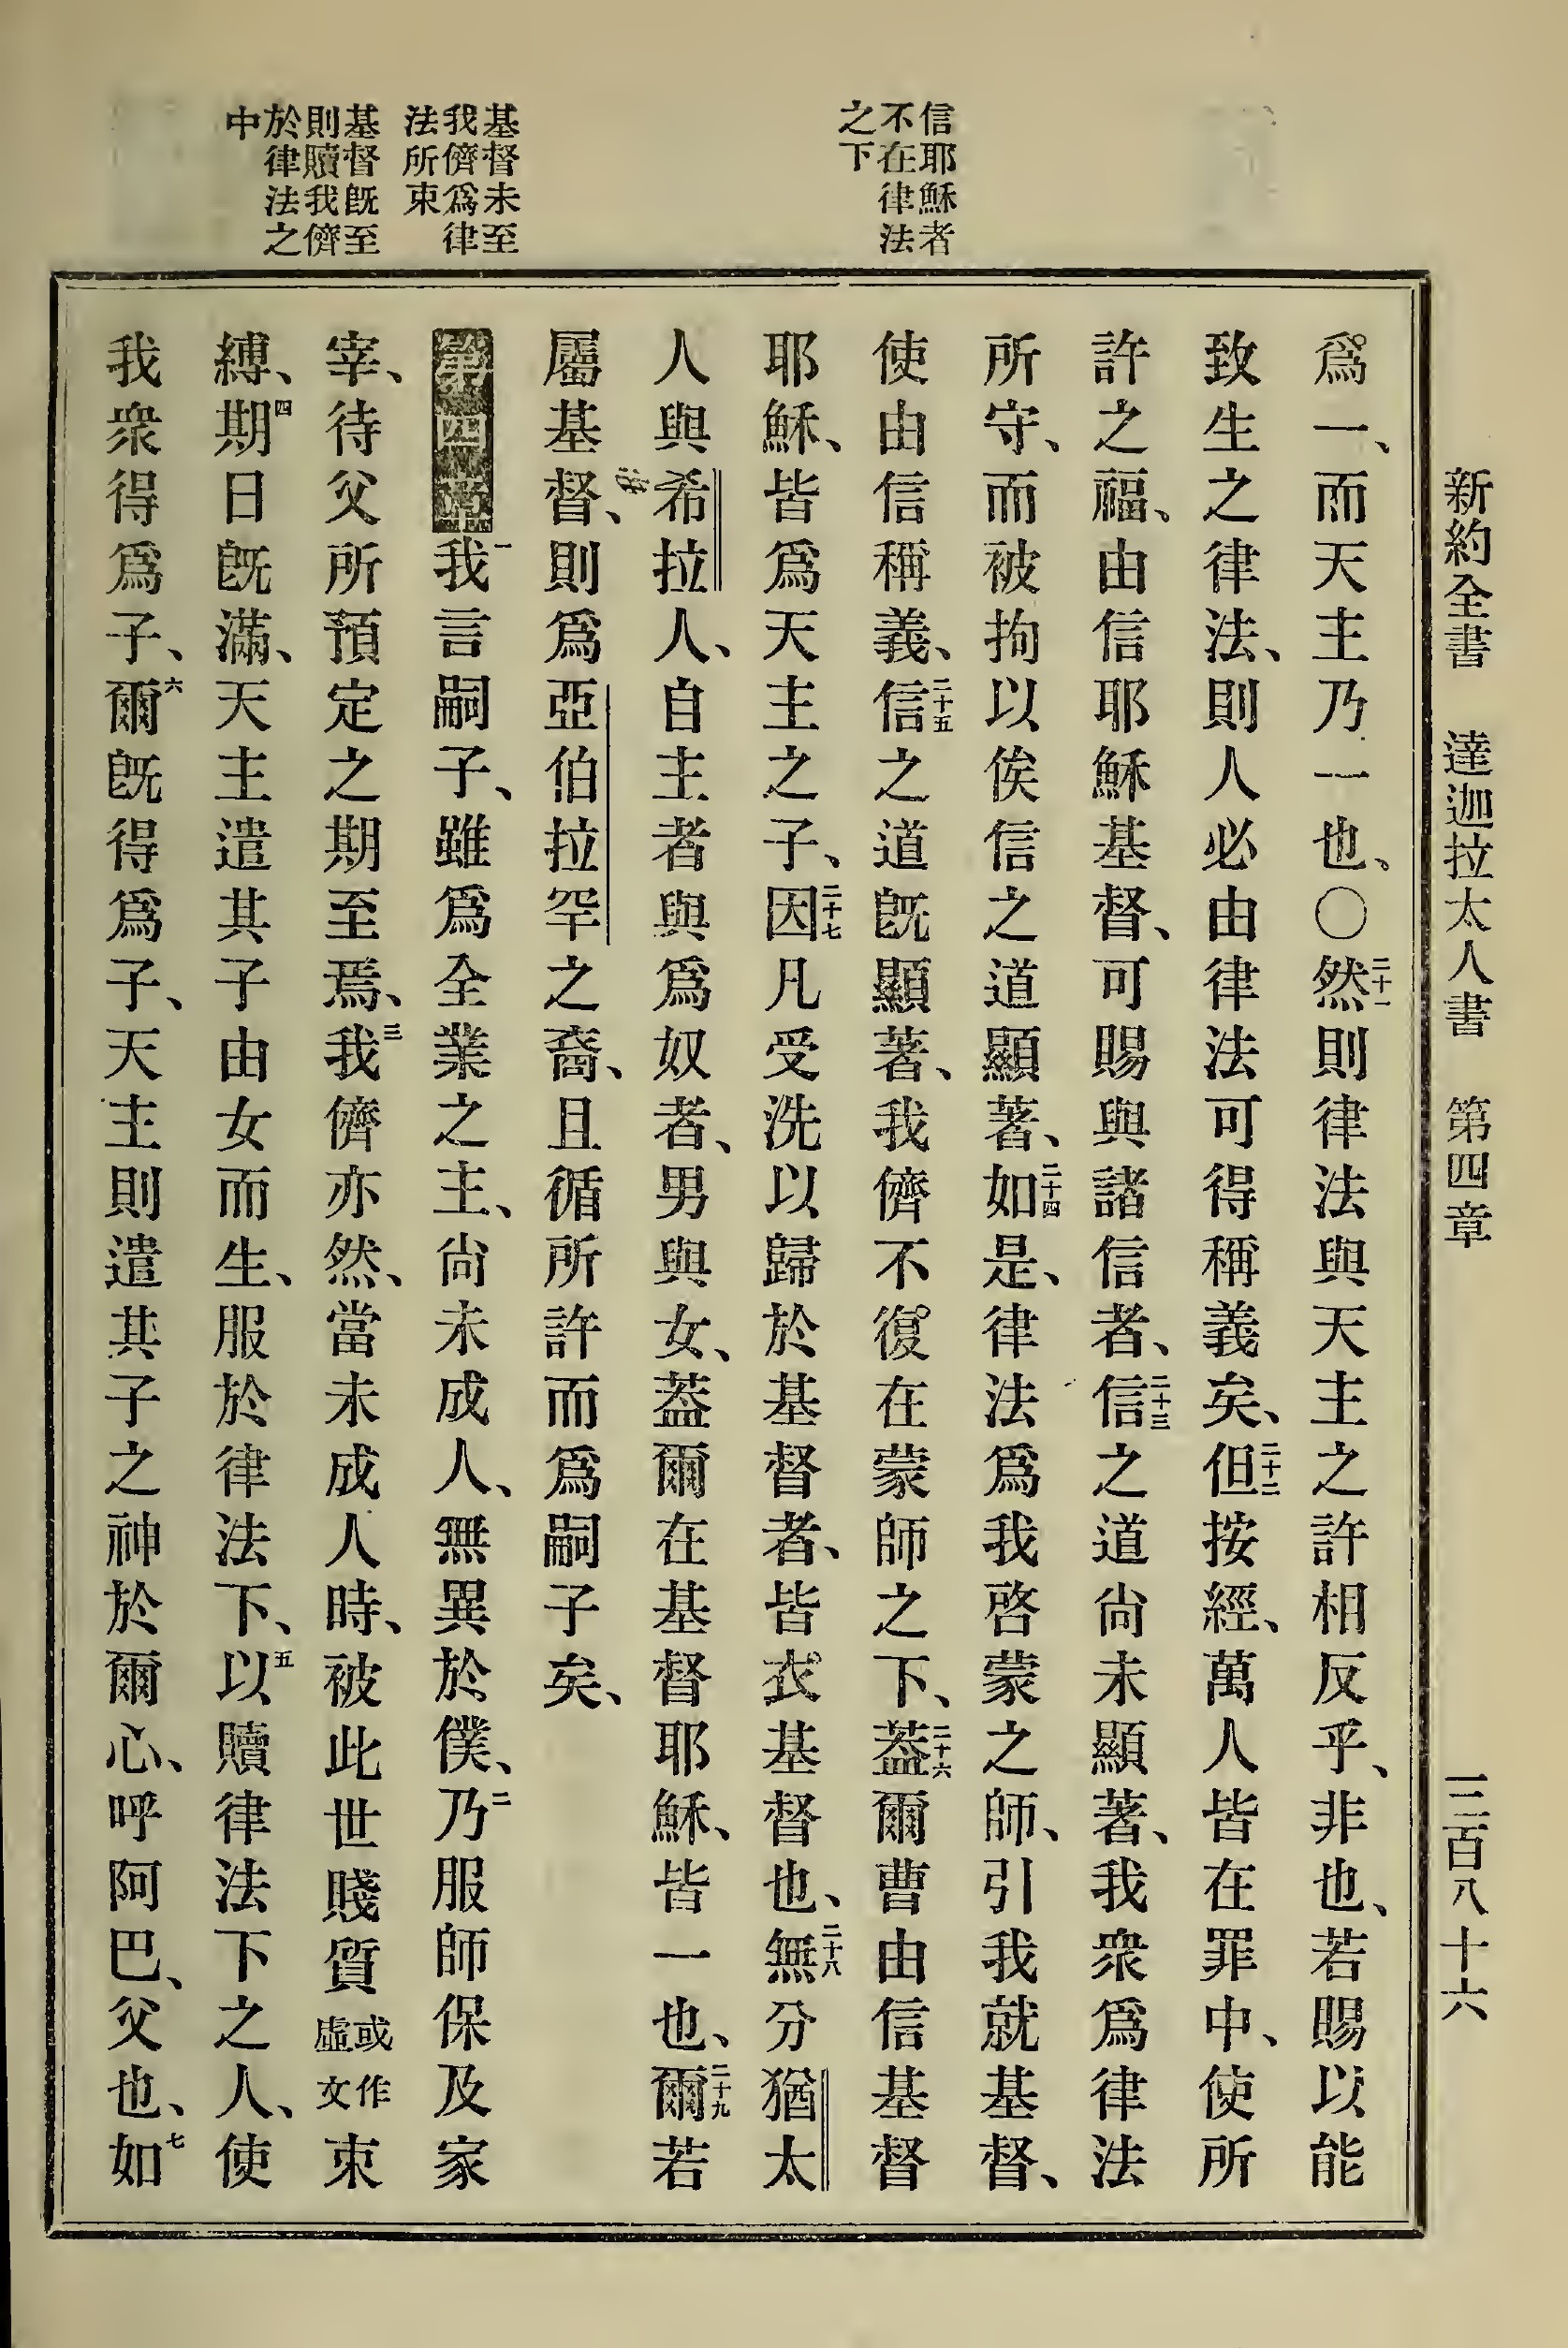 新約全書 達迦拉太人書 第四章 三百八十六
信耶穌者
不在律法
之下
基督未至
我儕爲律
法所束
基督旣至
則贖我儕
於律法之
中
爲一、而天主乃一也、〇二十一然則律法與天主之許相反乎、非也、若賜以能
致生之律法、則人必由律法可得稱義矣、二十二但按經、萬人皆在罪中、使所
許之福、由信耶穌基督、可賜與諸信者、二十三信之道尙未顯著、我衆爲律法
所守、而被拘以俟信之道顯著、二十四如是、律法爲我啓蒙之師、引我就基督、
使由信稱義、二十五信之道旣顯著、我儕不復在蒙師之下、二十六葢爾曹由信基督
耶穌、皆爲天主之子、二十七因凡受洗以歸於基督者、皆衣基督也、二十八無分猶太
人與希拉人、自主者與爲奴者、男與女、葢爾在基督耶穌、皆一也、二十九爾若
屬基督、則爲亞伯拉罕之裔、且循所許而爲嗣子矣、
第四章一我言嗣子、雖爲全業之主、尙未成人、無異於僕、二乃服師保及家
宰、待父所預定之期至焉、三我儕亦然、當未成人時、被此世賤質或作虛文束
縛、四期日旣滿、天主遣其子由女而生、服於律法下、五以贖律法下之人、使
我衆得爲子、六爾旣得爲子、天主則遣其子之神於爾心、呼阿巴、父也、七如